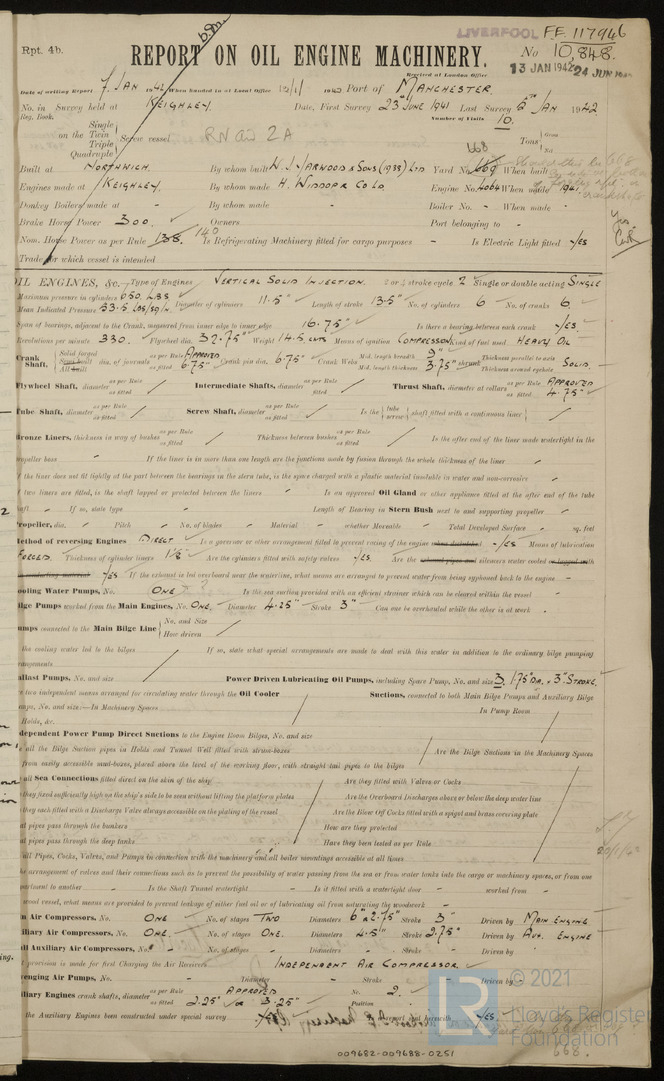 LIVERPOOL F.E. 117946
Rpt. 4b.
REPORT ON OIL ENGINE MACHINERY.
No 10,848.
Received at London Office
13 JAN 1942 24 JUN
Date of writing Report 7 JAN 1942 When handed in at Local Office Port of MANCHESTER.
No. in Survey held at KEIGHLEY. Date, First Survey 23rd JUNE 1941 Last Survey JAN 1942
Reg. Book. Number of Visits 10.
Single
on the Twin
Triple
Quadruple
Screw vessel
Tons Gross
Net
668
Built at NORTHWICH. By whom built W. J. YARWOOD & SONS (1938) LTD Yard No. 669 When built
Engines made at KEIGHLEY. By whom made H. WIDDOP CO LD. Engine No. 4064 When made 1941.
Donkey Boilers made at - By whom made - Boiler No. - When made -
Brake Horse Power 300. Owners Port belonging to -
Nom. Horse Power as per Rule 138. 140 Is Refrigerating Machinery fitted for cargo purposes - Is Electric Light fitted YES
Trade for which vessel is intended
OIL ENGINES, &c. Type of Engines VERTICAL SOLID INJECTION. 2 or 4 stroke cycle 2 Single or double acting SINGLE
Maximum pressure in cylinders 650. LBS Diameter of cylinders 11.5" Length of stroke 13.5" No. of cylinders 6 No. of cranks 6.
Mean Indicated Pressure 53.5 LBS/SQ IN.
Span of bearings, adjacent to the Crank, measured from inner edge to inner edge 16.75" Is there a bearing between each crank YES.
Revolutions per minute 330. Flywheel dia. 32.75" Weight 14.5 CWTS Means of ignition COMPRESSION Kind of fuel used HEAVY OIL
Crank Shaft, Solid forged Semi built All built dia. of journals as per Rule APPROVED as fitted 6.75" Crank pin dia. 6.75" Crank Webs Mid. length breadth 9" Mid. length thickness 3.75" shrunk Thickness parallel to axis SOLID. Thickness around eyehole
Flywheel Shaft, diameter as per Rule as fitted Intermediate Shafts, diameter as per Rule as fitted Thrust Shaft, diameter at collars as per Rule APPROVED as fitted 4.75"
Tube Shaft, diameter as per Rule as fitted Screw Shaft, diameter as per Rule as fitted Is the tube screw shaft fitted with a continuous liner
Bronze Liners, thickness in way of bushes as per Rule as fitted Thickness between bushes as per Rule as fitted Is the after end of the liner made watertight in the
propeller boss - If the liner is in more than one length are the junctions made by fusion through the whole thickness of the liner
If the liner does not fit tightly at the part between the bearings in the stern tube, is the space charged with a plastic material insoluble in water and non-corrosive
If two liners are fitted, is the shaft lapped or protected between the liners Is an approved Oil Gland or other appliance fitted at the after end of the tube
shaft If so, state type Length of Bearing in Stern Bush next to and supporting propeller
Propeller, dia. Pitch No. of blades Material whether Moveable Total Developed Surface sq. feet
Method of reversing Engines DIRECT Is a governor or other arrangement fitted to prevent racing of the engine when declutched YES Means of lubrication
FORCED Thickness of cylinder liners 1⅛" Are the cylinders fitted with safety valves YES Are the exhaust pipes and silencers water cooled or lagged with
non-conducting material YES If the exhaust is led overboard near the waterline, what means are arranged to prevent water from being syphoned back to the engine -
Cooling Water Pumps, No. ONE Is the sea suction provided with an efficient strainer which can be cleared within the vessel
Bilge Pumps worked from the Main Engines, No. ONE. Diameter 4.25" Stroke 3" Can one be overhauled while the other is at work
Pumps connected to the Main Bilge Line No. and Size
How driven
Is the cooling water led to the bilges If so, state what special arrangements are made to deal with this water in addition to the ordinary bilge pumping
arrangements
Ballast Pumps, No. and size Power Driven Lubricating Oil Pumps, including Spare Pump, No. and size 3, 1.75" DIA. x 3" STROKE.
two independent means arranged for circulating water through the Oil Cooler Suctions, connected to both Main Bilge Pumps and Auxiliary Bilge
Pumps, No. and size:-In Machinery Spaces In Pump Room
Holds, &c.
Independent Power Pump Direct Suctions to the Engine Room Bilges, No. and size
all the Bilge Suction pipes in Holds and Tunnel Well fitted with strum-boxes Are the Bilge Suctions in the Machinery Spaces
from easily accessible mud-boxes, placed above the level of the working floor, with straight tail pipes to the bilges
all Sea Connections fitted direct on the skin of the ship Are they fitted with Valves or Cocks
they fixed sufficiently high on the ship's side to be seen without lifting the platform plates Are the Overboard Discharges above or below the deep water line
they each fitted with a Discharge Valve always accessible on the plating of the vessel Are the Blow Off Cocks fitted with a spigot and brass covering plate
at pipes pass through the bunkers How are they protected
at pipes pass through the deep tanks Have they been tested as per Rule
all Pipes, Cocks, Valves, and Pumps in connection with the machinery and all boiler mountings accessible at all times
the arrangement of valves and their connections such as to prevent the possibility of water passing from the sea or from water tanks into the cargo or machinery spaces, or from one
partment to another - Is the Shaft Tunnel watertight - Is it fitted with a watertight door - worked from -
wood vessel, what means are provided to prevent leakage of either fuel oil or of lubricating oil from saturating the woodwork
Main Air Compressors, No. ONE No. of stages TWO Diameters 6" & 2.75" Stroke 3" Driven by MAIN ENGINE
Auxiliary Air Compressors, No. ONE No. of stages ONE. Diameters 4.5" Stroke 2.75" Driven by AUX. ENGINE
Small Auxiliary Air Compressors, No. - No. of stages - Diameters - Stroke - Driven by -
provision is made for first Charging the Air Receivers INDEPENDENT AIR COMPRESSOR.
Scavenging Air Pumps, No. - Diameter Stroke Driven by -
Auxiliary Engines crank shafts, diameter as per Rule APPROVED as fitted 2.25" 3.25" No. 2. Position
the Auxiliary Engines been constructed under special survey YES. Is a report sent herewith YES.
© 2021
LR
Lloyd's Register
Foundation
009682-009688-0251